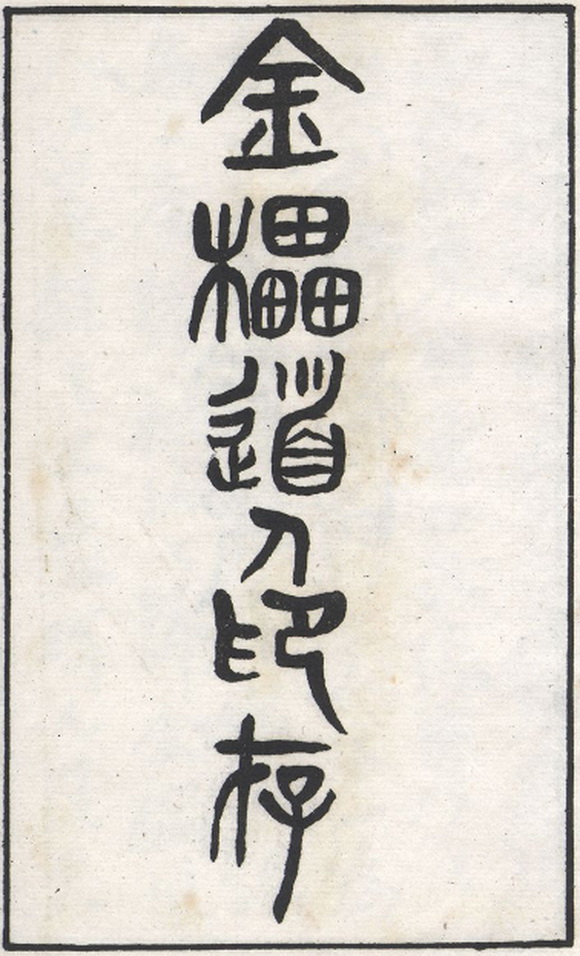 金櫑道人印存